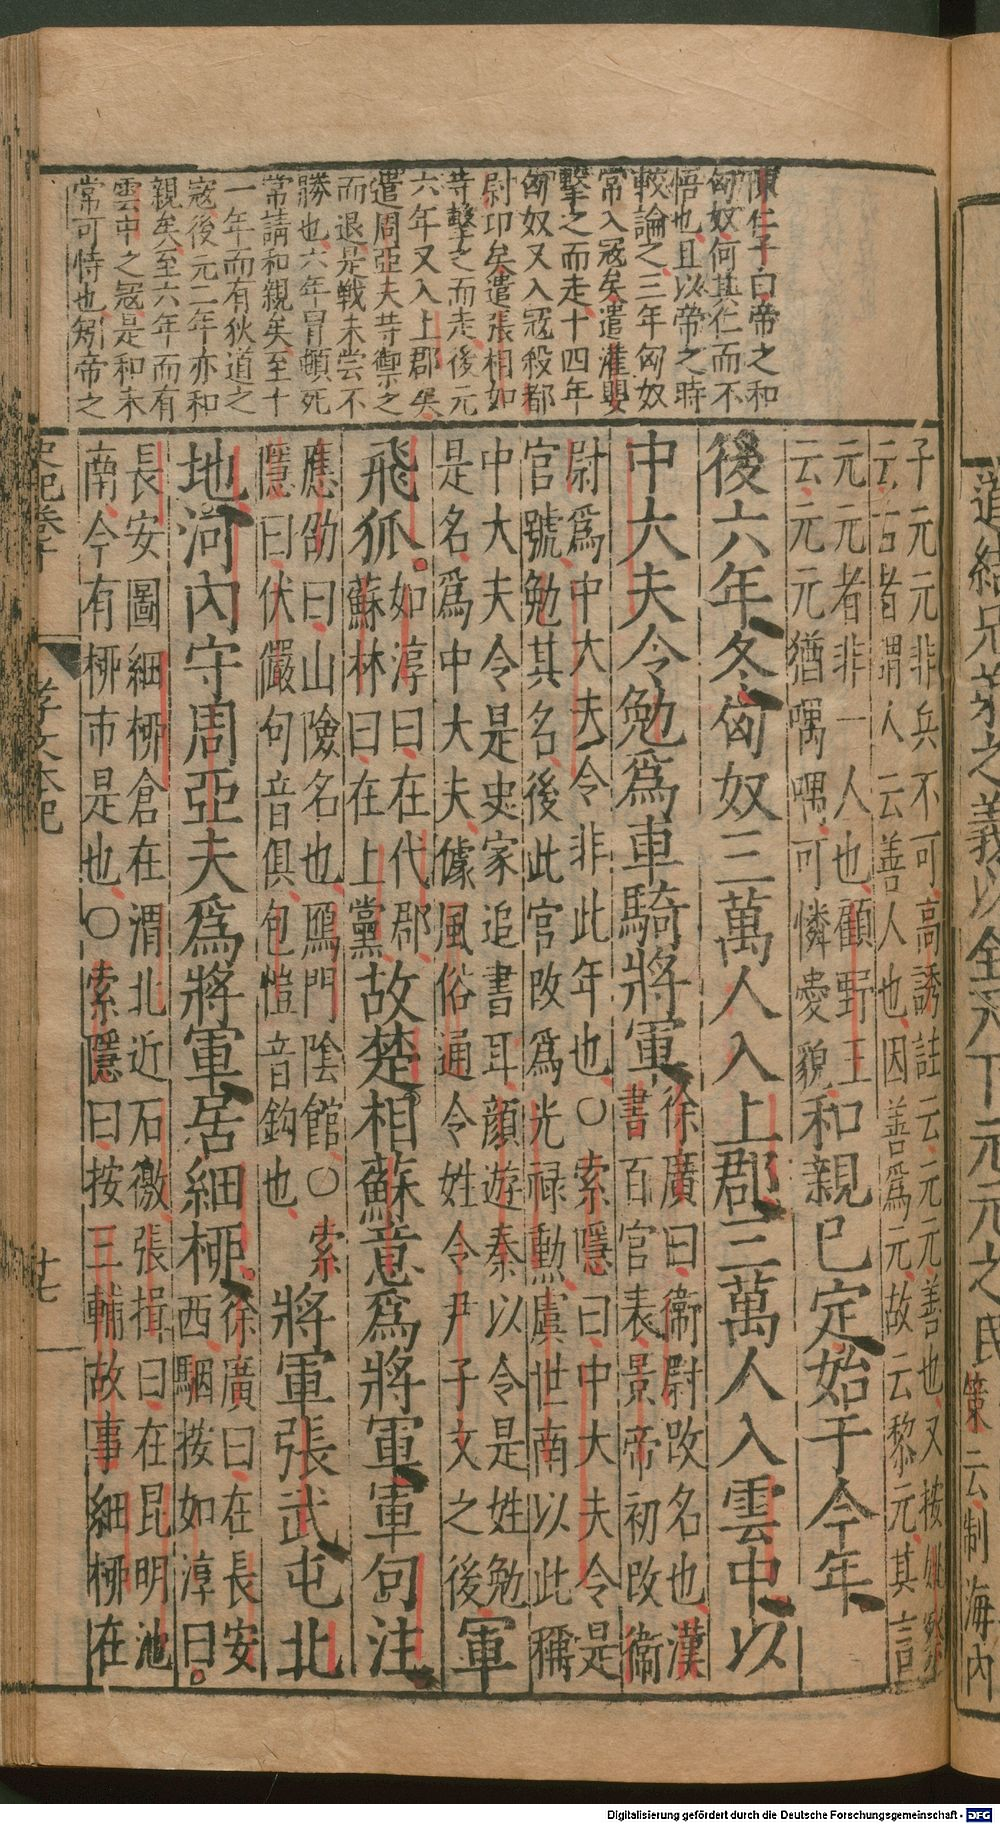 陳仁子曰帝之和
匈奴何其仁而不
悟也且以帝之時
較論之三年匈奴
常入寇矣遣灌嬰
擊之而走十四年
匈奴又入寇殺都
尉卭矣遣張相如
等擊之而走後元
六年又入上郡矣
遣周亞夫等禦之
而退是戰未嘗不
勝也六年冒頓死
常請和親矣至十
一年而有狄道之
寇後元二年亦和
親矣至六年而有
雲中之寇是和未
常可恃也矧帝之
子元元非兵不可高誘註云元元善也又按姚察
云古者謂人云善人也因善爲元故云黎元其言
元元者非一人也顧野王
云元元猶喁喁可憐愛貌和親已定始于今年
後六年冬匈奴三萬人入上郡三萬人入雲中以
中大夫令勉爲車騎將軍徐廣曰衛尉改名也漢
書百官表景帝初改衛
尉爲中大夫令非此年也○索隱曰中大夫令是
官號勉其名後此官改爲光祿勲虞世南以此稱
中大夫令是史家追書耳顔遊秦以令是姓勉
是名爲中大夫據風俗通令姓令尹子文之後軍
飛狐如淳曰在代郡
蘇林曰在上黨故楚相蘇意爲將軍軍句注
應劭曰山險名也鴈門陰館○索
隱曰伏儼句音俱包愷音鈎也將軍張武屯北
地河內守周亞夫爲將軍居細柳徐廣曰在長安
西駰按如淳曰
長安圖細柳倉在渭北近石徼張揖曰在昆明池
南今有柳市是也○索隱曰按三輔故事細柳在
史記卷十 孝文本紀 廿七
道結兄弟之義以全天下元元之民策云制海內
Digitalisierung gefördert durch die Deutsche Forschungsgemeinschaft - DFG